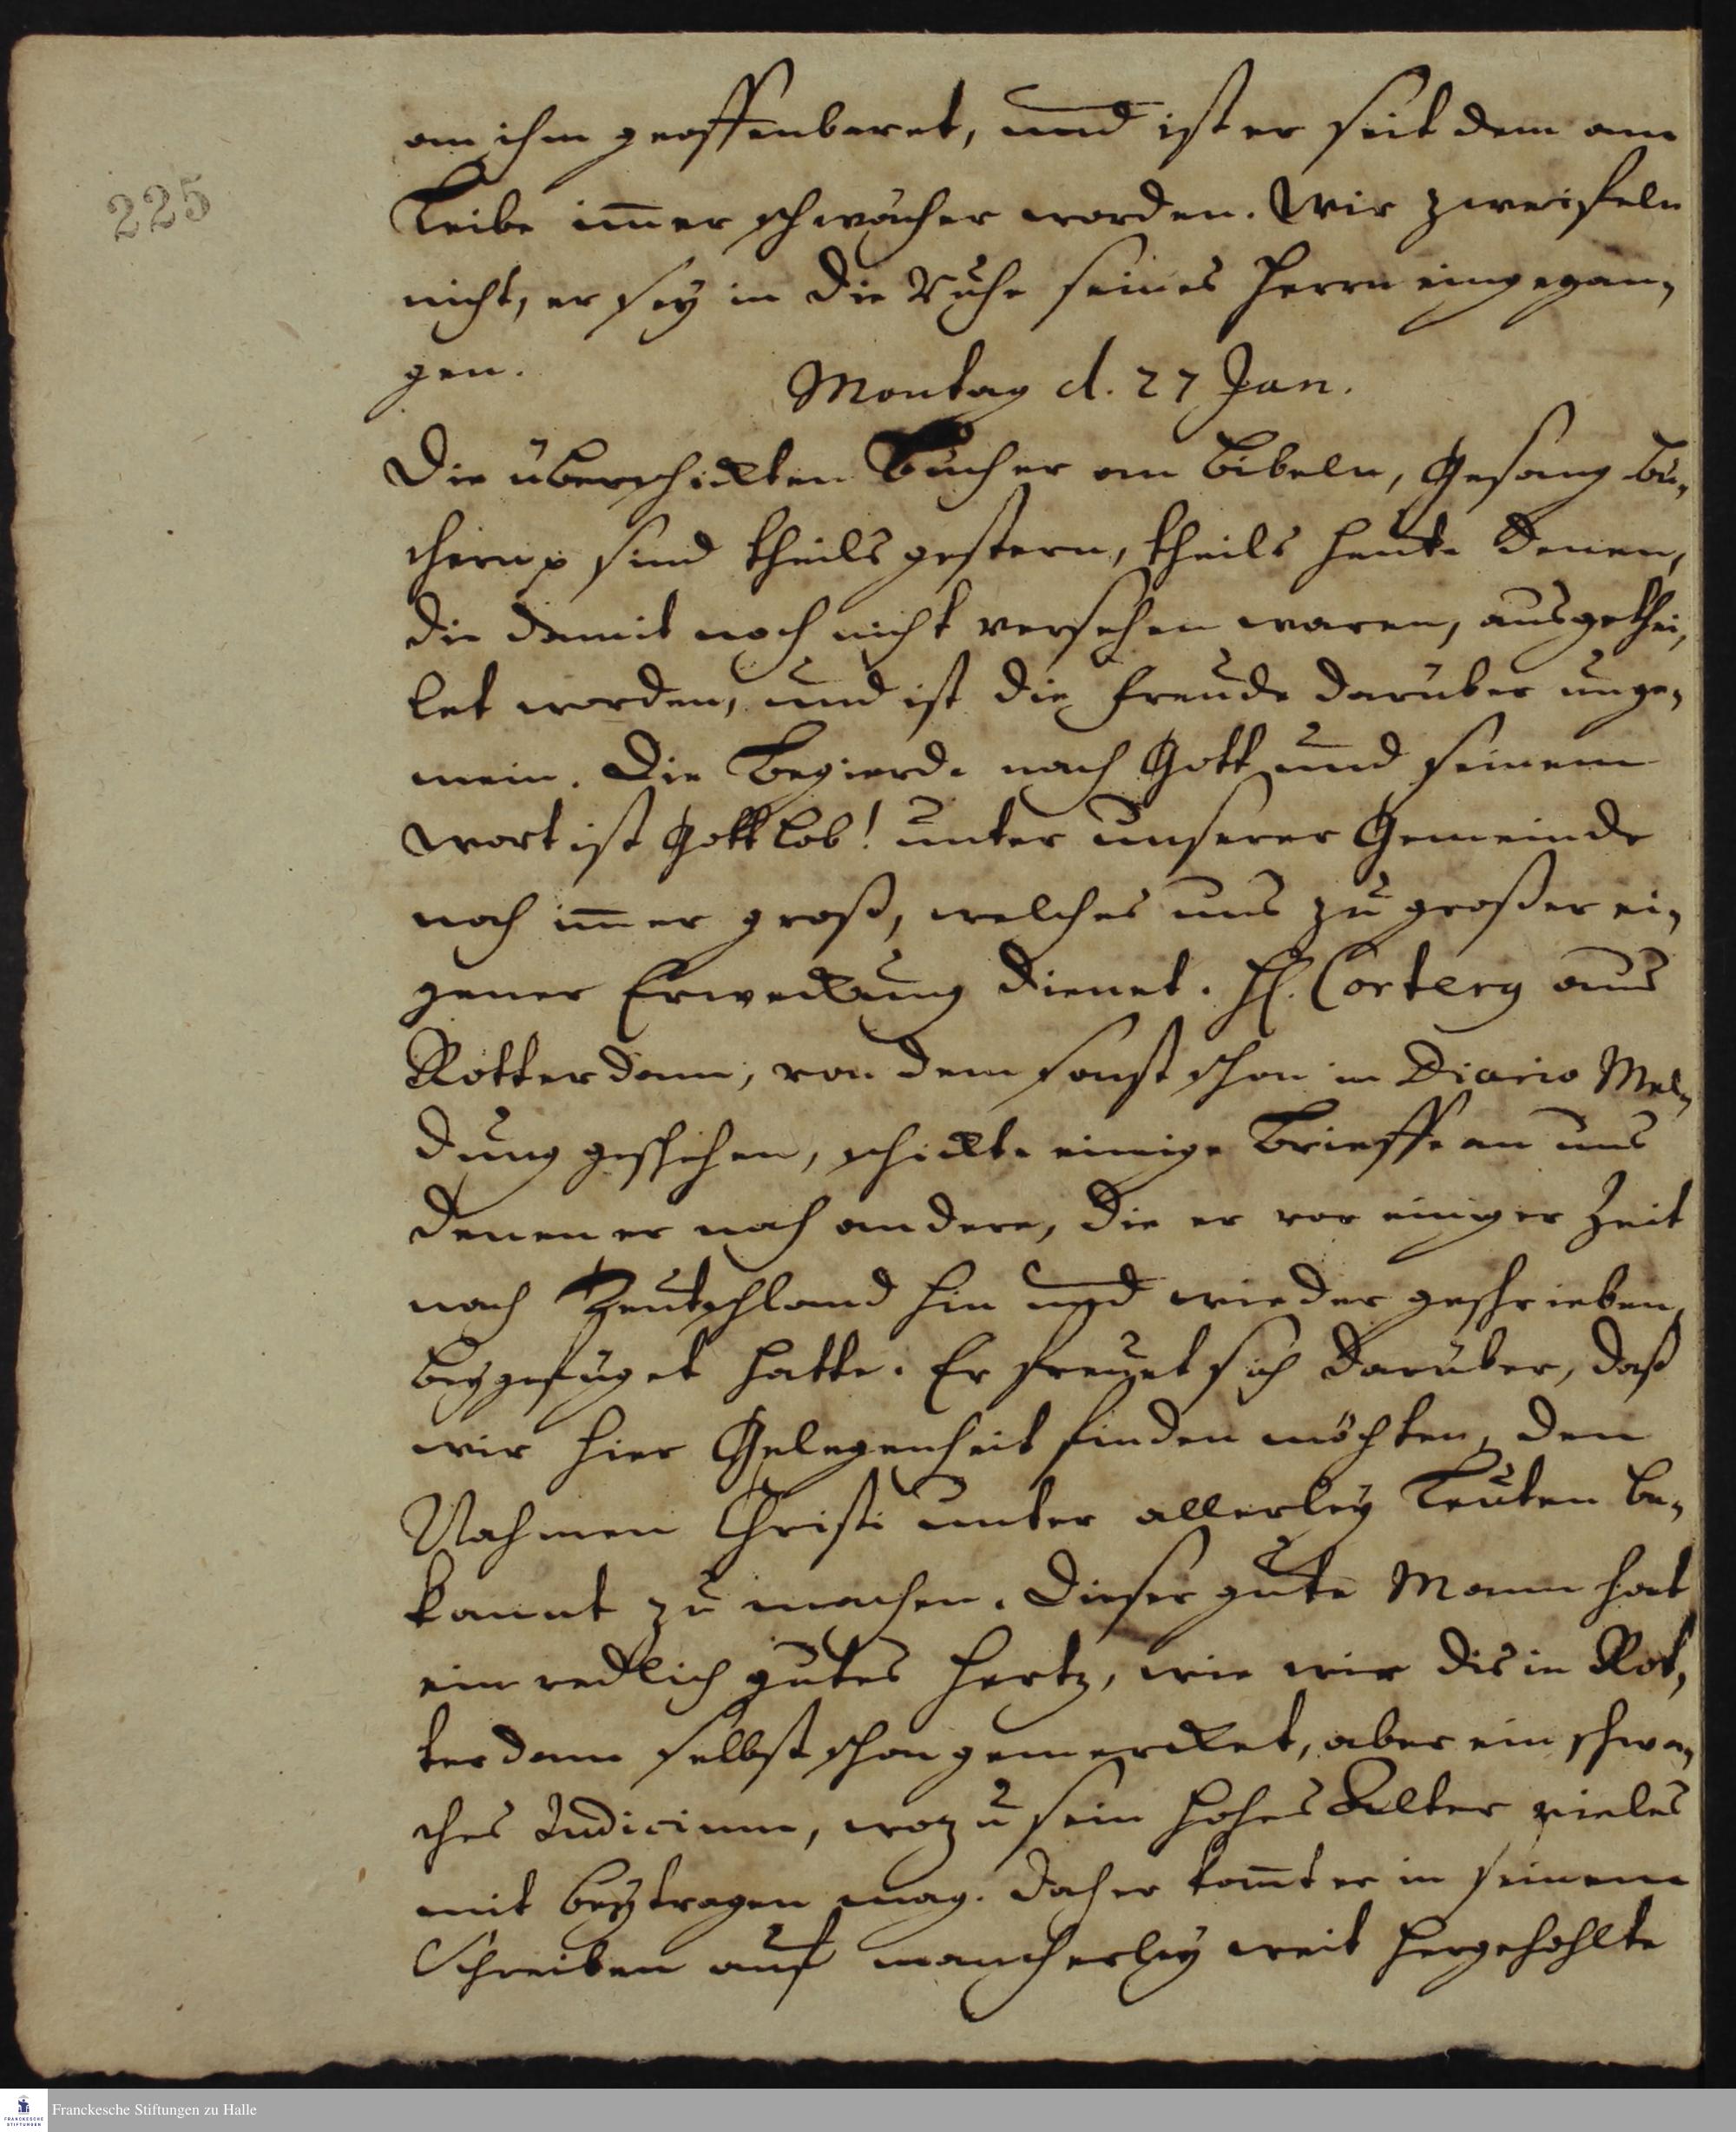 225
an ihm geoffenbaret, und ist er seit dem am
Leibe im̄er schwächer worden. Wir zweifeln
nicht, er sey in die Ruhe seines Herrn eingegan¬
gen.
Montag d. 27 Jan.
Die überschickten Bücher an Bibeln, Gesang bü¬
chern p sind theils gestern, theils heute denen,
die damit noch nicht versehen waren, ausgethei¬
let worden, und ist die Freude darüber unge¬
mein. Die Begierde nach Gott und seinem
Wort ist Gott Lob! unter unserer Gemeinde
noch im̄er groß, welches uns zu großer ei¬
gener Erweckung dienet. H. Corterg aus
Rotterdam, von dem sonst schon im Diario Mel¬
dung geschehen, schickte einige Brieffe an uns
denen er noch andere, die er vor einiger Zeit
nach Teutschland hin und wieder geschrieben,
beygefüget hatte. Er freuet sich darüber, daß
wir hier Gelegenheit finden möchten, den
Nahmen Christi unter allerley Leuten be¬
kannt zu machen. Dieser gute Mann hat
ein redlich gutes Hertz, wie wir dis in Rot¬
terdam selbst schon gemercket, aber ein schwa¬
ches Judicium, wozu sein hohes Alter vieles
mit beytragen mag. Daher kom̄t er in seinem
Schreiben auf mancherley weit hergehohlte
Franckesche Stiftungen zu Halle
FRANCKESCHE
STIFTUNGEN